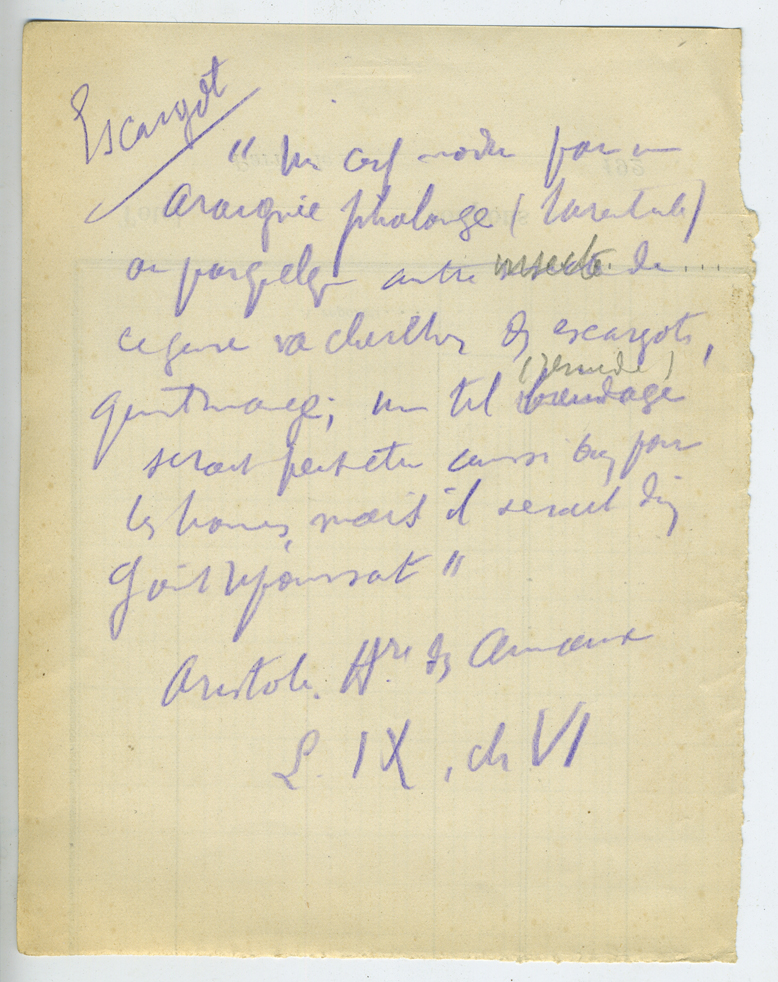 Escargot
" Un cerf mordu par un
araignée phalange (tarentule)
ou par quelque autre insecte de
ce genre va chercher des escargots,
qu'il mange; un tel breuvage
(remède)
serait peut-être aussi bon pour
les hommes, mais il serait d'un
goût repoussant "
Aristote. Hre des Animaux
L. IX, ch VI